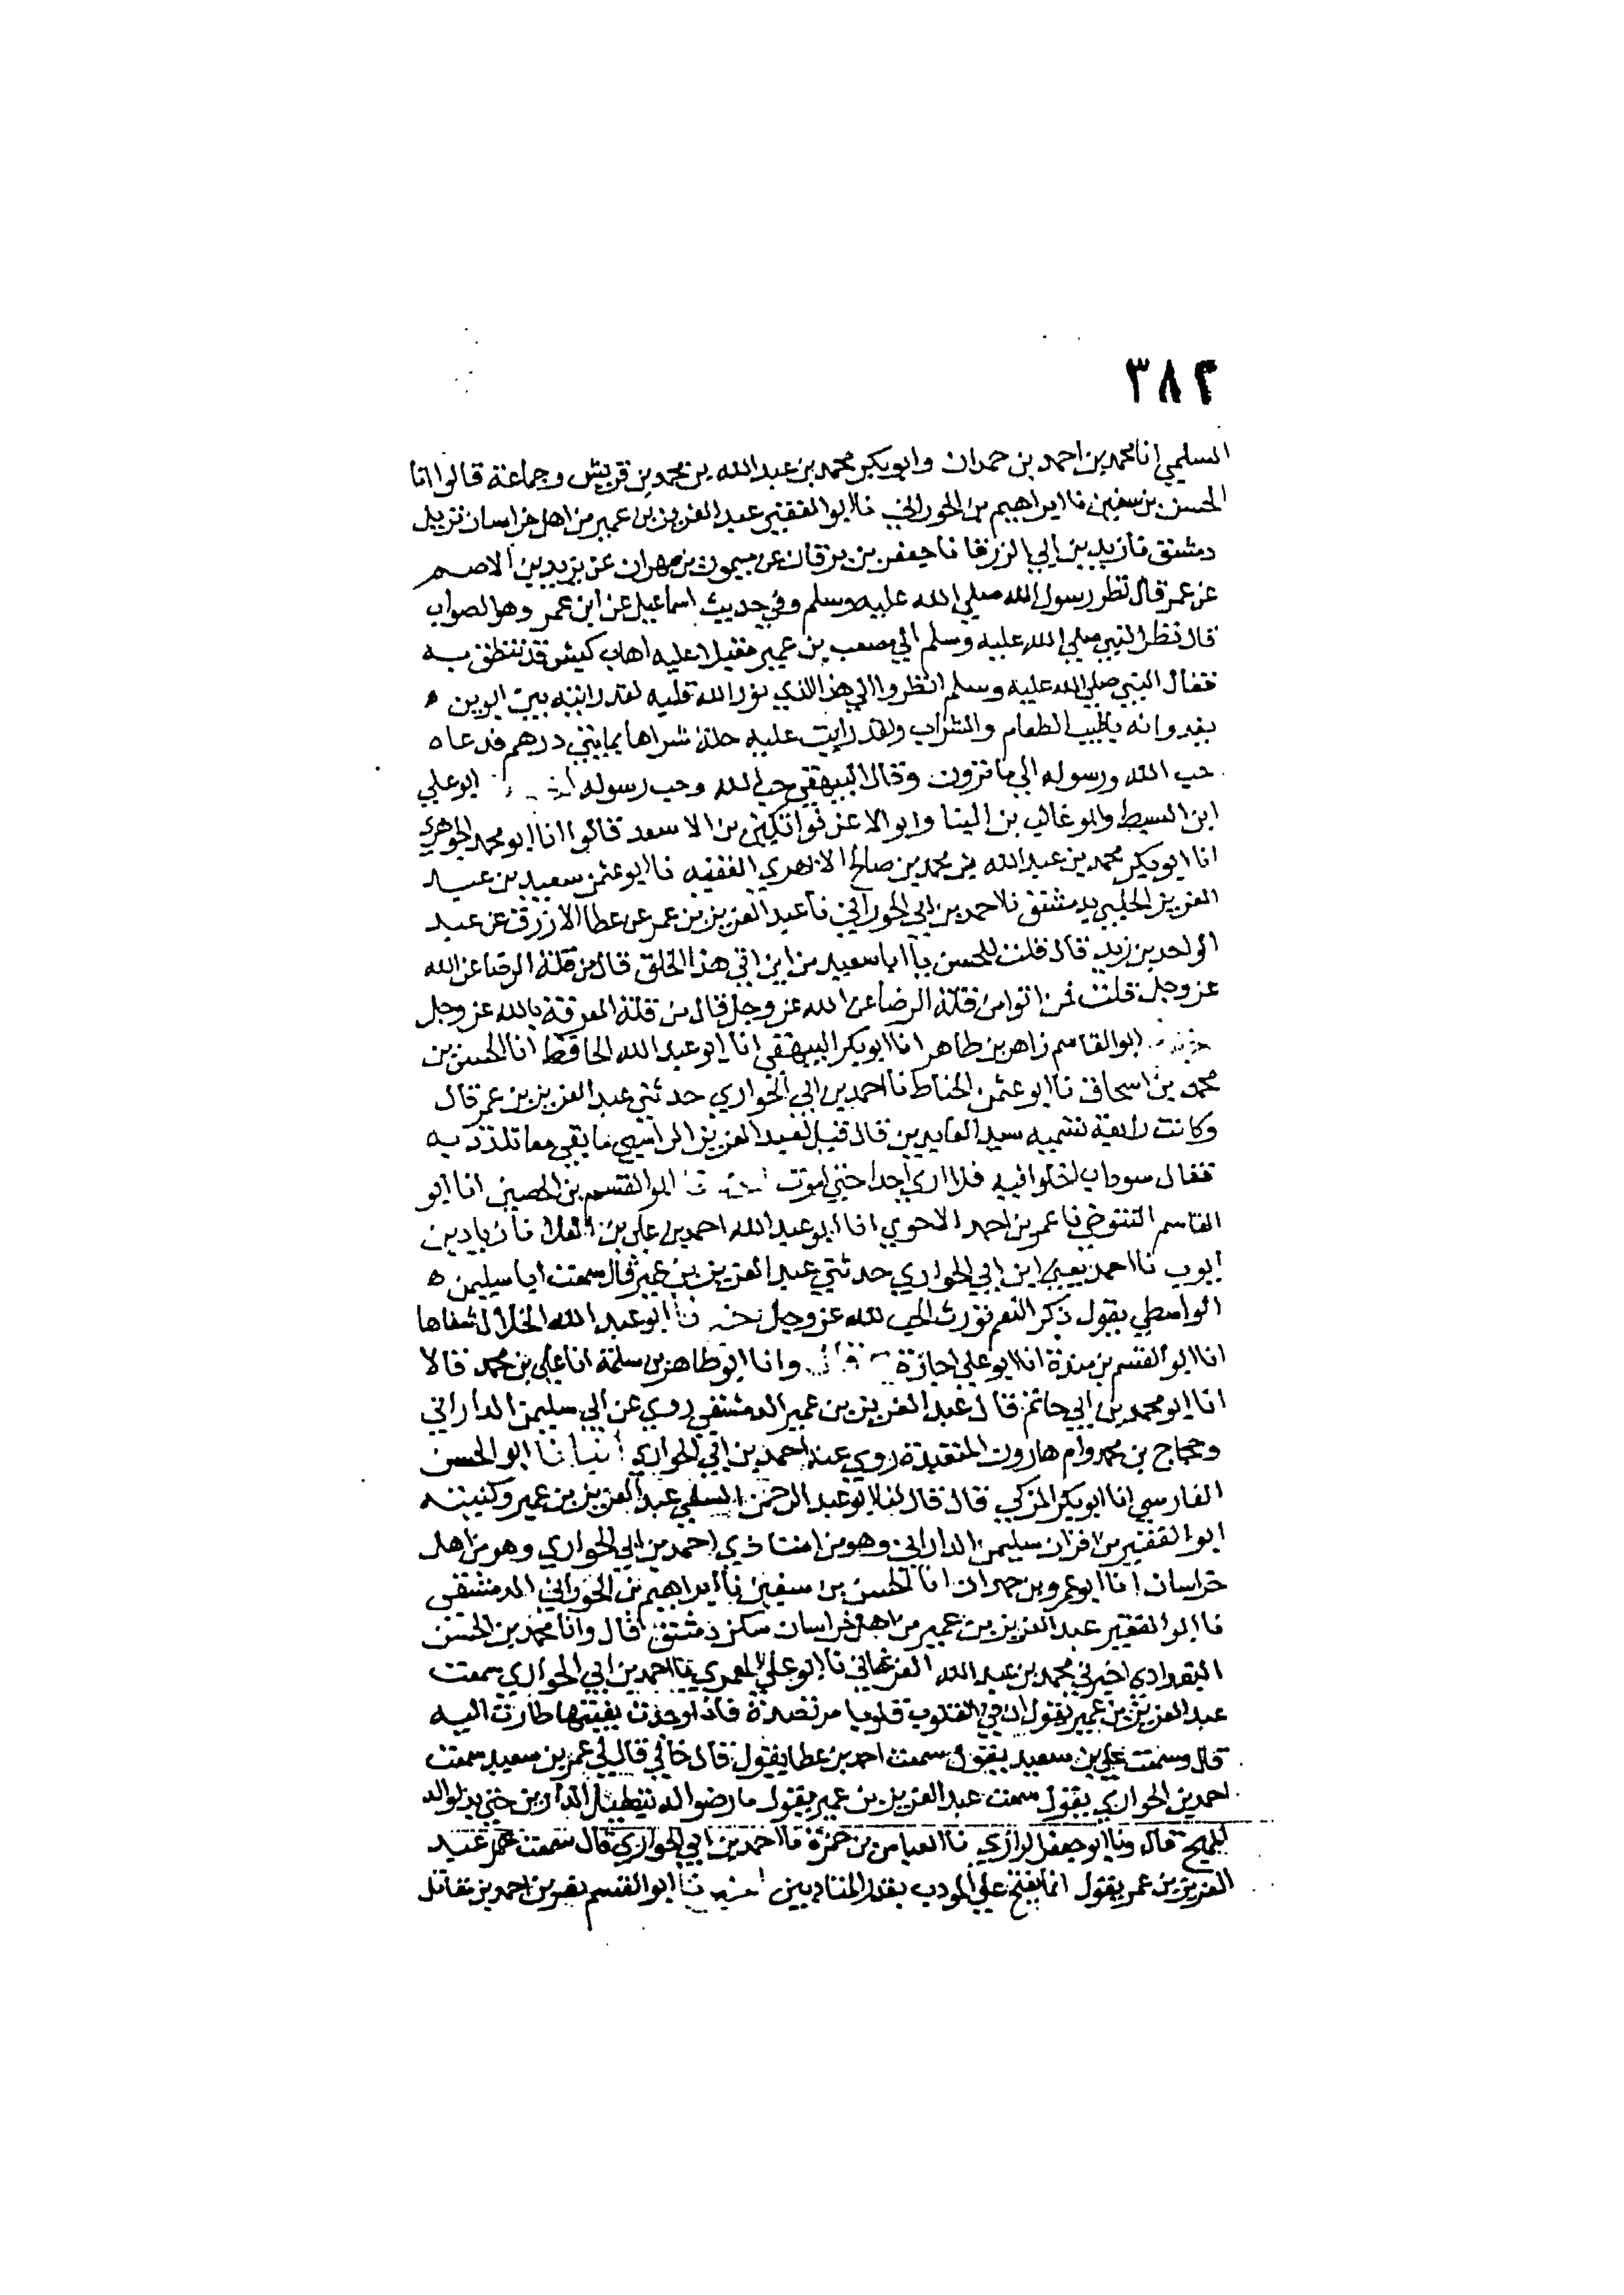 ٣٨٢
السلمي انا محمد بن احمد بن حمدان وابو بكر محمد بن عبد الله بن محمد بن قريش وجماعة قالوا انا
الحسن بن سفين نا ابراهيم بن الحوراني نا ابو الفقير عبد العزيز بن عمير من اهل خراسان نزيل
دمشق نا زيد بن ابي الزرقا نا جعفر بن برقان عن ميمون بن مهران عن يزيد بن الاصم
عن عمر قال نظر رسول الله صلي الله عليه وسلم وفي حديث اسماعيل عن ابن عمر وهو الصواب
قال نظر النبي صلي الله عليه وسلم الي مصعب بن عمير مقبلا عليه اهاب كبش قد تنطق به
فقال النبي صلي الله عليه وسلم انظروا الي هذا الذي نور الله قلبه لقد رايته بين ابوين ه
يغدوانه بالطيب الطعام والشراب ولقد رايت عليه حلة شراها بمايتي درهم فدعاه
حب الله ورسوله الي ما ترون وقال البيهقي حب الله وحب رسوله ابو علي
ابن السبط وابو غالب بن البنا وابو الاعز قراتكين بن الاسعد قالوا انا ابو محمد الجوهري
انا ابو بكر محمد بن عبد الله بن محمد بن صالح الابهري الفقيه نا ابو عثمن سعيد بن عبد
العزيز الحلبي بدمشق نا احمد بن ابي الحوراني نا عبد العزيز بن عمر عن عطا الازرق عن عبد
الواحد بن زيد قال قلت للحسن يا ابا سعيد من اين اتي هذا الخلق قال من قلة الرضا عن الله
عز وجل قلت فمن اين اتوا من قلة الرضا عن الله عز وجل قال من قلة المعرفة بالله عز وجل
ابو القاسم زاهر بن طاهر انا ابو بكر البيهقي انا ابو عبد الله الحافظ انا الحسن بن
محمد بن اسحاق نا ابو عثمن الحناط نا احمد بن ابي الحواري حدثني عبد العزيز بن عمر قال
وكانت رابعة تسميه سيد العابدين قال قيل لعبد العزيز الراسبي ما بقي مما تلذذ به
فقال سرداب اخلوا فيه فلا اري احدا حتي اموت ابو القسم بن الحصين انا ابو
القاسم التنوخي نا عمر بن احمد الاحوي انا ابو عبد الله احمد بن علي بن العلا نا زياد بن
ايوب نا احمد يعني ابن ابي الحواري حدثني عبد العزيز بن عمير قال سمعت ابا سليمن ه
الواسطي يقول ذكر النعم تورث الحب لله عز وجل نا ابو عبد الله الخلال شفاها
انا ابو القسم بن مندة انا ابو علي اجازة وانا ابو طاهر بن سلمة انا علي بن محمد قالا
انا ابو محمد بن ابي حاتم قال عبد العزيز بن عمير الدمشقي روي عن ابي سليمن الداراني
وحجاج بن محمد وام هارون المتعبدة روي عنه احمد بن ابي الحواري انبانا ابو الحسن
الفارسي انا ابو بكر المزكي قال قال لنا ابو عبد الرحمن السلمي عبد العزيز بن عمير وكنيته
ابو الفقير من اقران سليمن الداراني وهو من استاذي احمد بن ابي الحواري وهو من اهل
خراسان انا ابو عمرو بن حمدان انا الحسن بن سفين نا ابراهيم بن الحوراني الدمشقي
نا ابو الفقير عبد العزيز بن عمير من اهل خراسان سكن دمشق قال وانا محمد بن الحسن
البغدادي اخبرني محمد بن عبد الله الفرغاني نا ابو علي المعمري نا احمد بن ابي الحواري سمعت
عبد العزيز بن عمير يقول ان في القلوب قلوبا مرتصدة فاذا وجدت بغيتها طارت اليه
قال وسمعت علي بن سعيد يقول سمعت احمد بن عطا يقول قال خالي قال لي عمر بن سعيد سمعت
احمد بن الحواري يقول سمعت عبد العزيز بن عمير يقول
قال ونا ابو جعفر الرازي نا العباس بن حمزة نا احمد بن ابي الحواري قال سمعت عمر عبد
العزيز بن عمر يقول انما يفتح علي المودب بقدر المتادبين ابو القسم نصر بن احمد بن مقاتل